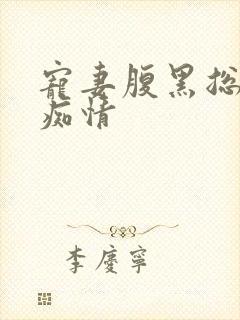 寵妻腹黑总
痴情
李慶寧